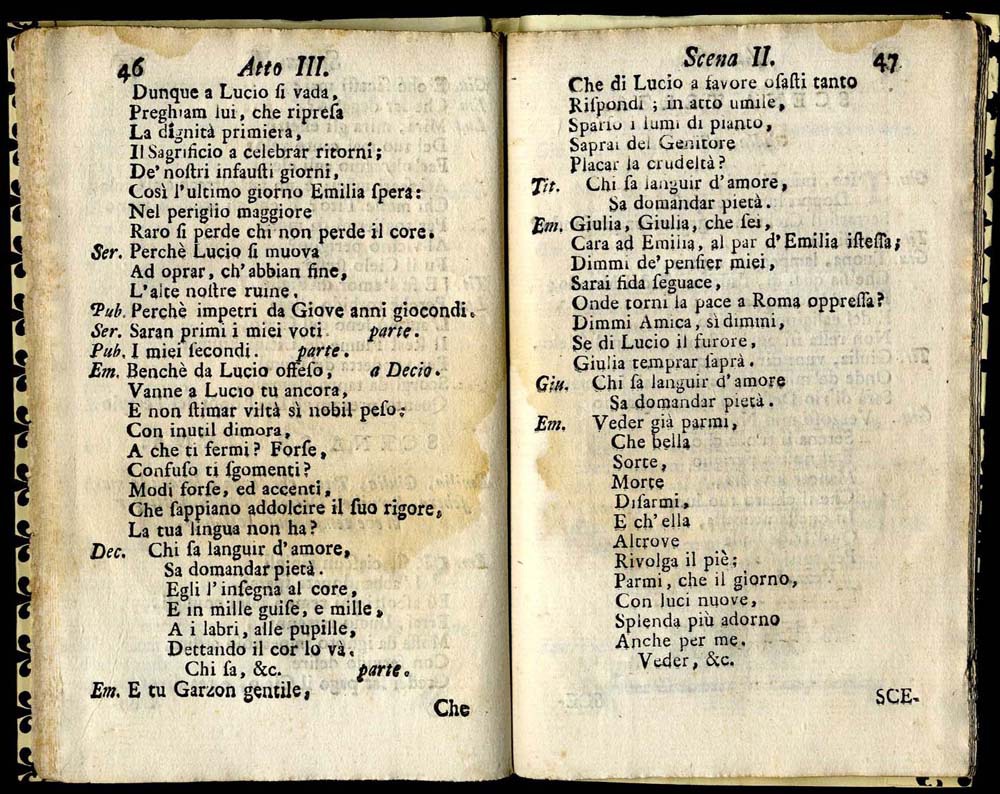 46 Atto III.
Dunque a Lucio ſi vada,
Preghiam lui, che ripreſa
La dignità primiera,
Il Sagrificio a celebrar ritorni;
De' noſtri infauſti giorni,
Così l'ultimo giorno Emilia ſpera:
Nel periglio maggiore
Raro ſi perde chi non perde il core.
Ser. Perchè Lucio ſi muova
Ad oprar, ch'abbian fine,
L'alte noſtre ruine.
Pub. Perchè impetri da Giove anni giocondi.
Ser. Saran primi i miei voti. parte.
Pub. I miei ſecondi. parte.
Em. Benchè da Lucio offeſo, a Decio.
Vanne a Lucio tu ancora,
E non ſtimar viltà sì nobil peſo;
Con inutil dimora,
A che ti fermi? Forſe,
Confuſo ti ſgomenti?
Modi forſe, ed accenti,
Che ſappiano addolcire il ſuo rigore,
La tua lingua non ha?
Dec. Chi ſa languir d'amore,
Sa domandar pietà.
Egli l'inſegna al core,
E in mille guiſe, e mille,
A i labri, alle pupille,
Dettando il cor lo và.
Chi ſa, &c. parte.
Em. E tu Garzon gentile,
Che
Scena II. 47
Che di Lucio a favore oſaſti tanto
Riſpondi; in atto umile,
Sparſo i lumi di pianto,
Saprai del Genitore
Placar la crudeltà?
Tit. Chi ſa languir d'amore,
Sa domandar pietà.
Em. Giulia, Giulia, che ſei,
Cara ad Emilia, al par d'Emilia iſteſſa;
Dimmi de' penſier miei,
Sarai fida ſeguace,
Onde torni la pace a Roma oppreſſa?
Dimmi Amica, sì dimmi,
Se di Lucio il furore,
Giulia temprar ſaprà.
Giu. Chi ſa languir d'amore
Sa domandar pietà.
Em. Veder già parmi,
Che bella
Sorte,
Morte
Diſarmi,
E ch'ella
Altrove
Rivolga il piè;
Parmi, che il giorno,
Con luci nuove,
Splenda più adorno
Anche per me.
Veder, &c.
SCE-